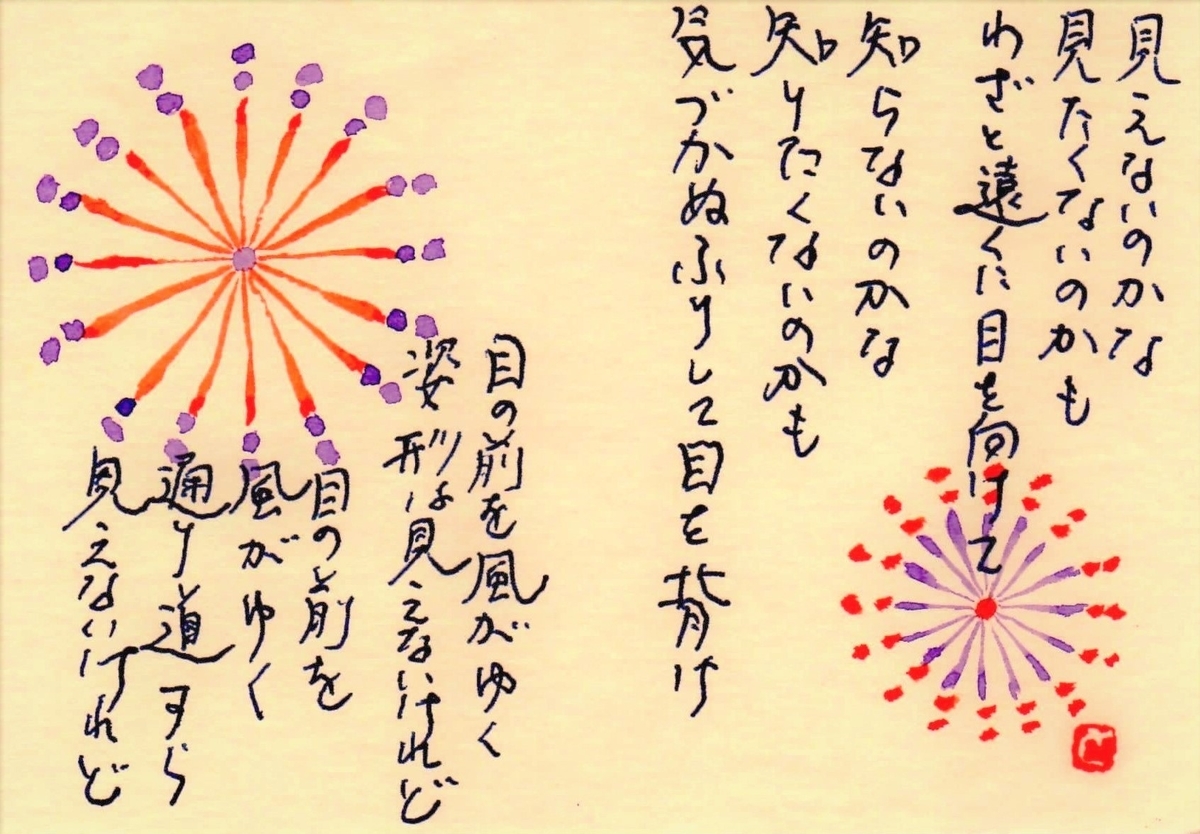 見えないのかな
見たくないのかも
わざと遠くに目を向けて
知らないのかな
知りたくないのかも
気づかぬふりして目を背け
目の前を風がゆく
姿形は見えないけれど
目の前を
風がゆく
通り道すら
見えないけれど